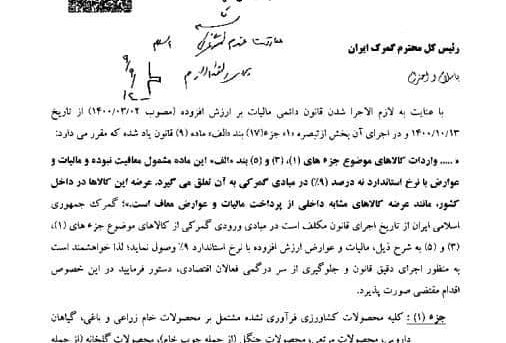 رئیس کل محترم گمرک ایران
با سلام و احترام
با عنایت به لازم الاجرا شدن قانون دائمی مالیات بر ارزش افزوده (مصوب ۱۴۰۰/۰۳/۰۲) از تاریخ
۱۴۰۰/۱۰/۱۳ و در اجرای آن بخش ازتبصره «۱» جزء(۱۷) بند «الف» ماده (۹) قانون یاد شده که مقرر می دارد:
« ..... واردات کالاهای موضوع جزء های (۱)، (۳) و (۵) بند «الف» این ماده مشمول معافیت نبوده و مالیات و
عوارض با نرخ استاندارد نه درصد (۹٪) در مبادی گمرکی به آن تعلق می گیرد. عرضه این کالاها در داخل
کشور، مانند عرضه کالاهای مشابه داخلی از پرداخت مالیات و عوارض معاف است.»؛ گمرک جمهوری
اسلامی ایران از تاریخ اجرای قانون مکلف است در مبادی ورودی گمرکی از کالاهای موضوع جزء های (۱)،
(۳) و (۵) به شرح ذیل، مالیات و عوارض ارزش افزوده با نرخ استاندارد ۹٪ وصول نماید؛ لذا خواهشمند است
به منظور اجرای دقیق قانون و جلوگیری از سر درگمی فعالان اقتصادی، دستور فرمایید در این خصوص
اقدام مقتضی صورت پذیرد.
جزء (۱) : کلیه محصولات کشاورزی فرآوری نشده مشتمل بر محصولات خام زراعی و باغی، گیاهان
دارویی، محصولات مرتعی، محصولات جنگل (از جمله چوب خام)، محصولات گلخانه (از جمله